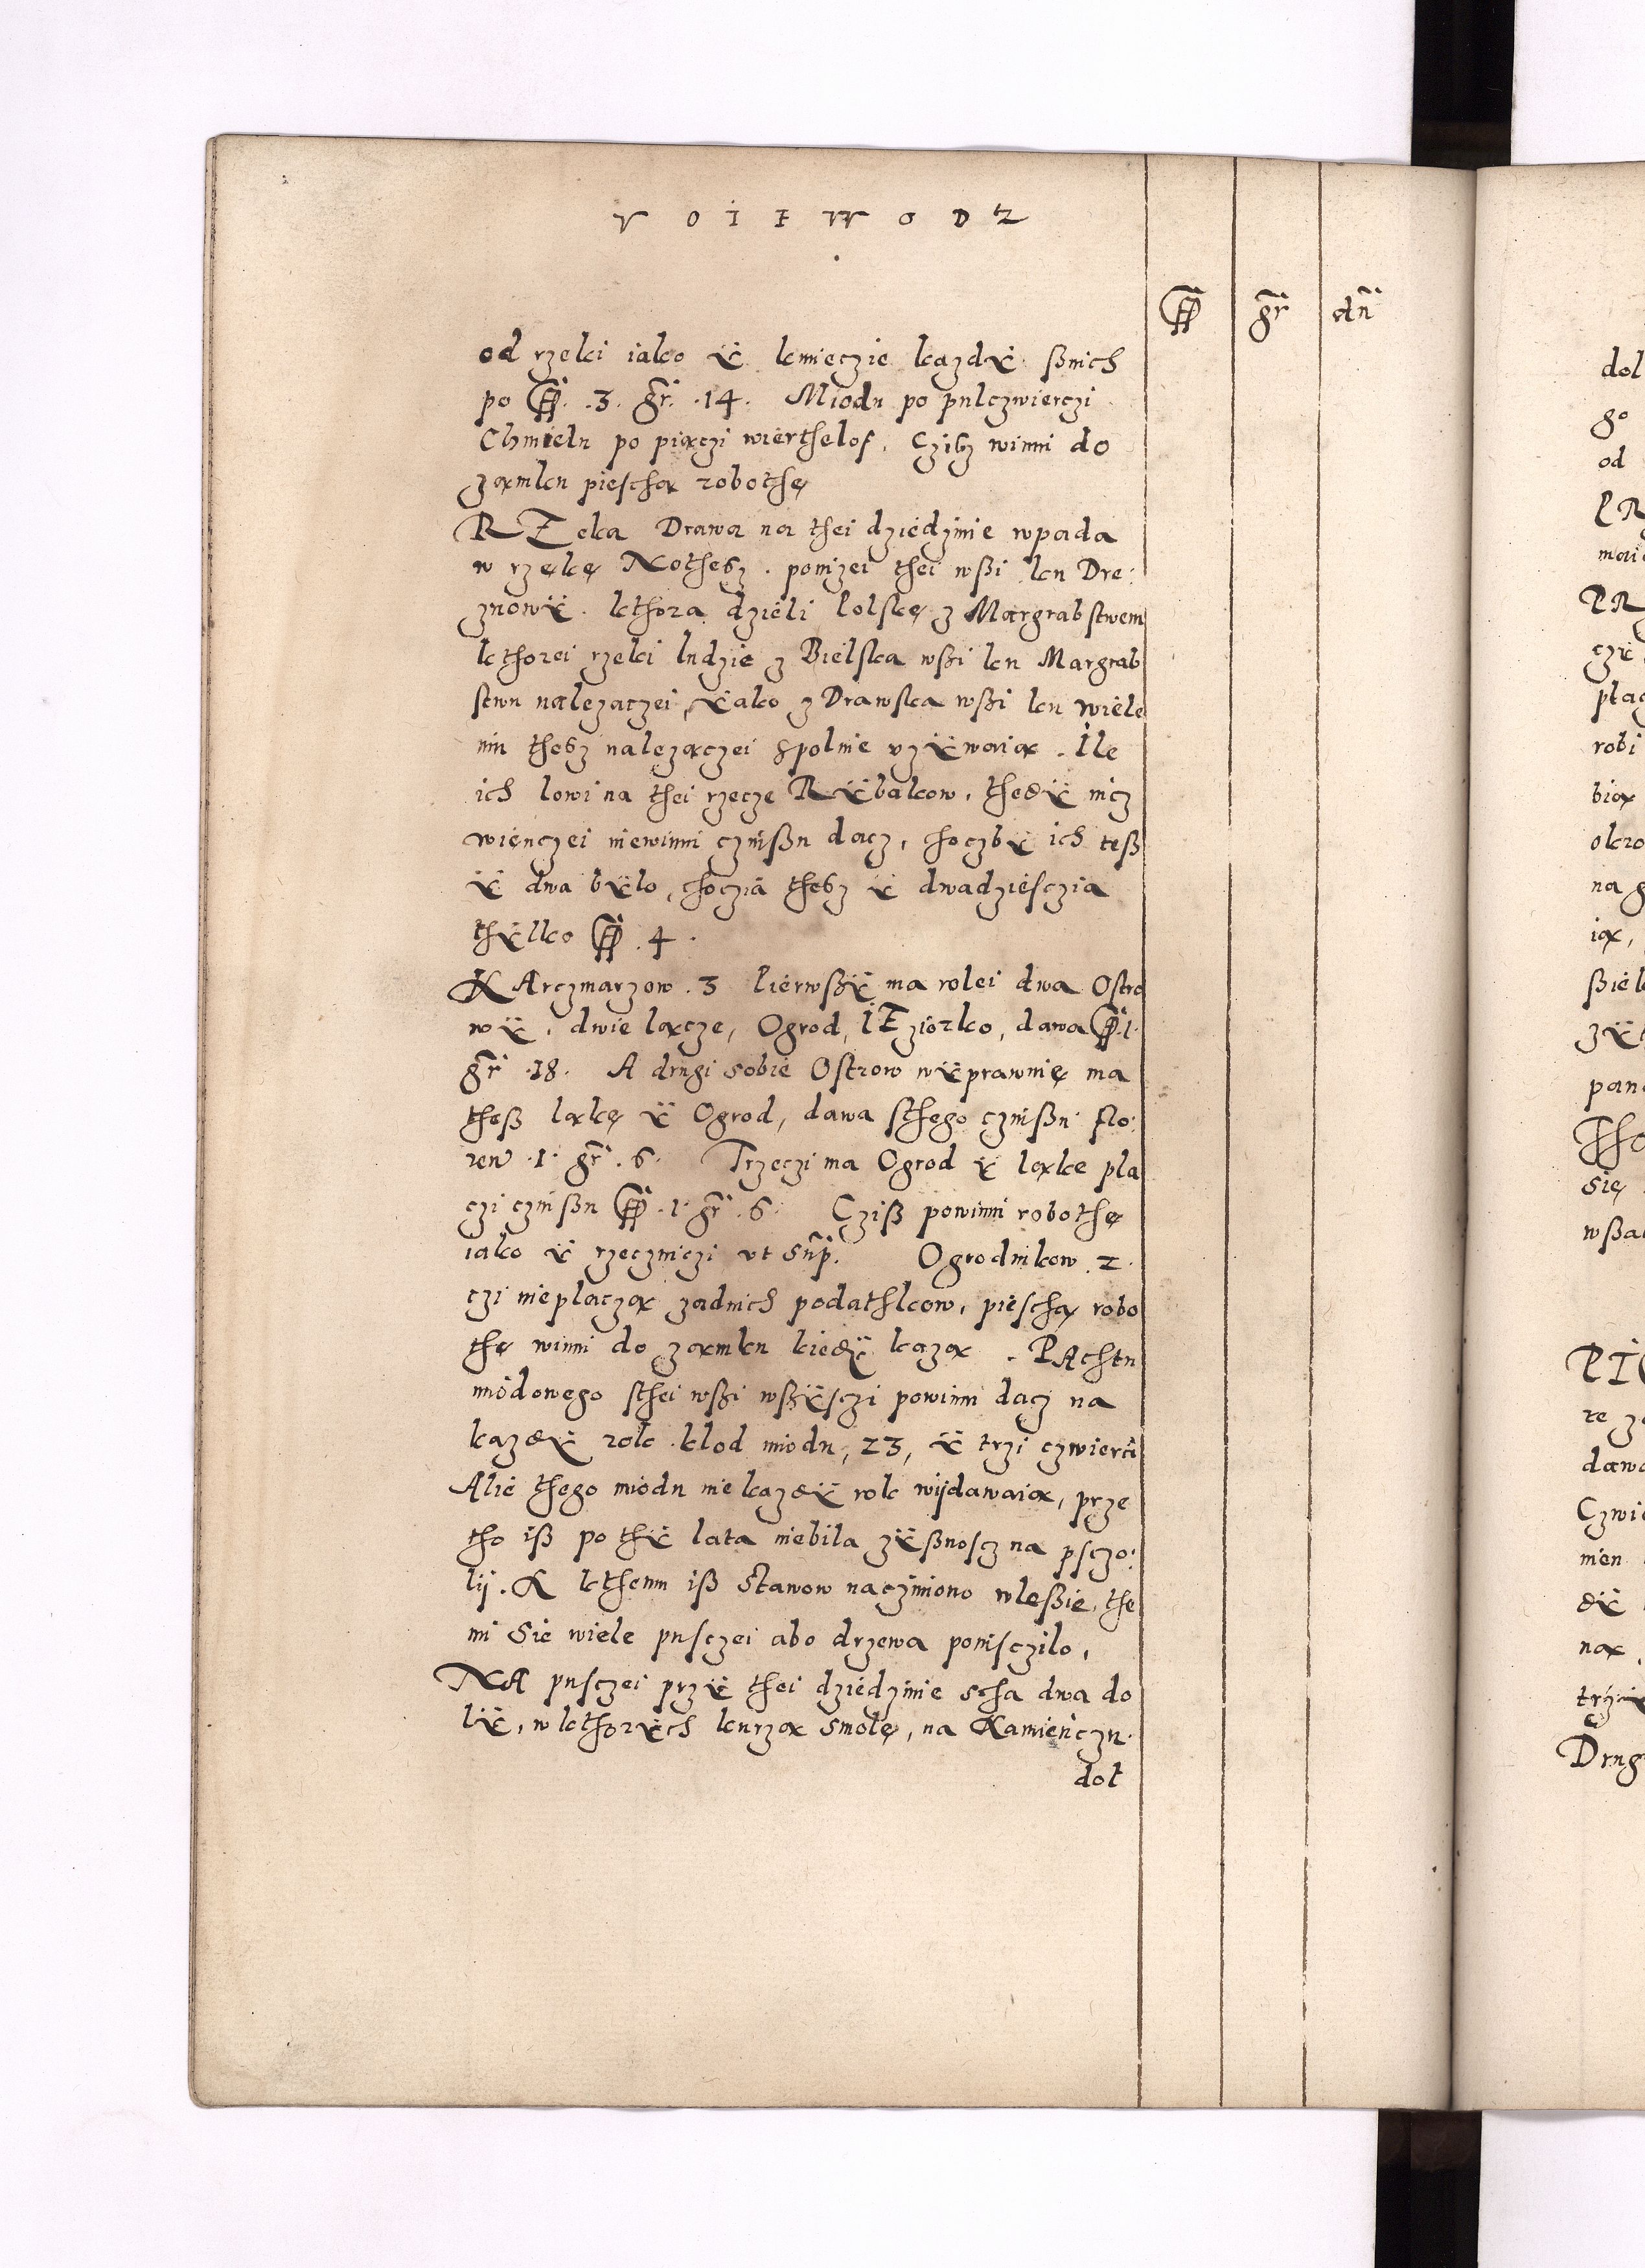 VOIEWODZ
ff gr̃ dñ
od rzeki iako ÿ kmieczie kazdÿ ßnich
po ff. .3. gr̃. .14. Miodu po pulczwierczi
Chmielu po piączi wierthelof. Czißz winni do
zamku pieschą robothę
RZeka Drawa na thei dziedzinie wpada
w rzękę Nothesz. ponizei thei wßi ku Dre:
znowÿ. kthora dzieli Polskę z Margrabstwem
kthorei rzeki ludzie z Bielska wßi ku Margrab
stwu nalezaczei, ÿako z Drawska wßi ku Wiele
niu thesz nalezączei spolnie uzÿwaią. Ile
ich lowi na thei rzecze Rÿbakow, thedÿ nicz
wienczei niewinni czinßu dacz, choczbÿ ich teß
ÿ dwa bÿlo, choczia thesz ÿ dwadziesczia
thÿlko ff .4.
KArczmarzow .3 Pierwßÿ ma rolei dwa Ostro
wÿ. dwie łącze, Ogrod, IEziorko, dawa ff .1.
gr̃ .18. A drugi sobie Ostrow wÿprawnię ma
theß łąkę ÿ Ogrod, dawa sthego czinßu flo:
ren .1. gr̃ .6. Trzeczi ma Ogrod ÿ łąke pla
czi czinßu ff .1. gr̃ .6. Cziß powinni robothę
iako ÿ rzeczniczi ut sup̃. Ogrodnikow .2.
czi nieplaczą zadnich podathkow, pieschą robo
thę winni do zamku kiedÿ kazą. PAchtu
miodowego sthei wßi wßÿsczi powinni dacz na
kazdÿ rok klod miodu, 23, ÿ trzi czwierci
Alie thego miodu nie kazdÿ rok wijdawaią, prze
tho iß po thÿ lata niebila zÿßnoscz na psczo:
lij. K kthemu iß Stawow naczÿniono wleßie, the
mi sie wiele pusczei abo drzewa ponisczilo,
NA pusczei przÿ thei dziedzinie scha dwa do
lÿ, w kthorÿch kurzą smolę, na Kamieńczu.
dol